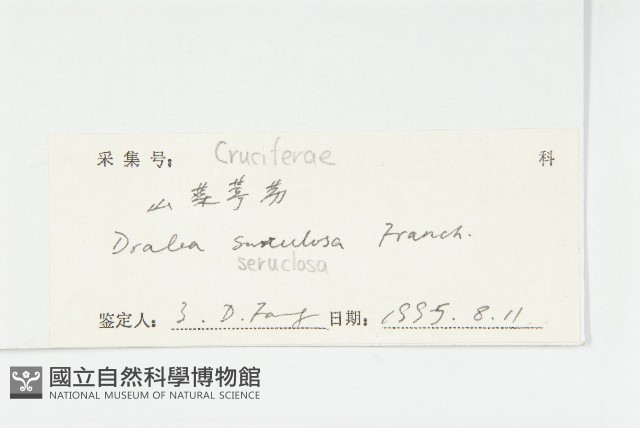 采集号: Cruciferae 科
山菜葶苈
Draba surculosa Franch.
seruclosa
鉴定人: Z. D. Fang 日期: 1995. 8. 11
國立自然科學博物館
NATIONAL MUSEUM OF NATURAL SCIENCE